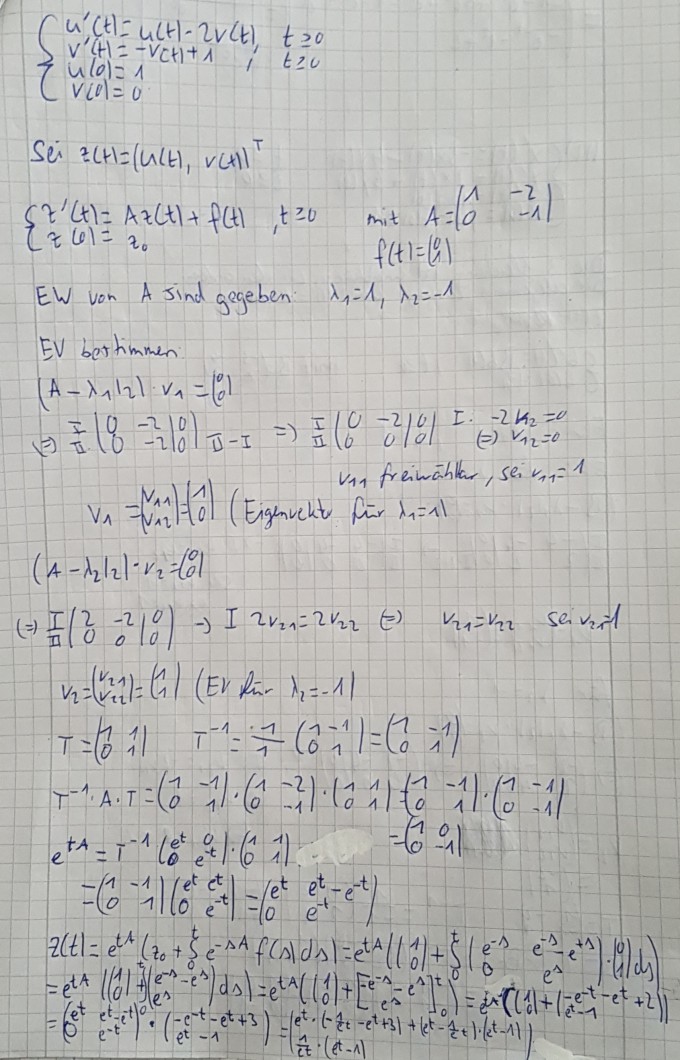 { u'(t) = u(t) - 2v(t), t ≥ 0
v'(t) = -v(t) + 1 , t ≥ 0
u(0) = 1
v(0) = 0
Sei z(t) = (u(t), v(t))^T
{ z'(t) = Az(t) + f(t) , t ≥ 0 mit A = (1 -2 / 0 -1)
z(0) = z_0 f(t) = (0 / 1)
EW von A sind gegeben: λ_1 = 1, λ_2 = -1
EV bestimmen:
(A - λ_1 I_2) · v_1 = (0 / 0)
(=) I II (0 -2 | 0 / 0 -2 | 0) II - I => I II (0 -2 | 0 / 0 0 | 0) I. -2v_12 = 0
(=) v_12 = 0
v_11 frei wählbar, sei v_11 = 1
v_1 = (v_11 / v_12) = (1 / 0) (Eigenvektor für λ_1 = 1)
(A - λ_2 I_2) · v_2 = (0 / 0)
(=) I II (2 -2 | 0 / 0 0 | 0) -> I 2v_21 = 2v_22 (=) v_21 = v_22 sei v_21 = 1
v_2 = (v_21 / v_22) = (1 / 1) (EV für λ_2 = -1)
T = (1 1 / 0 1) T^-1 = 1/1 (1 -1 / 0 1) = (1 -1 / 0 1)
T^-1 · A · T = (1 -1 / 0 1) · (1 -2 / 0 -1) · (1 1 / 0 1) = (1 -1 / 0 1) · (1 -1 / 0 -1)
= (1 0 / 0 -1)
e^tA = T^-1 (e^t 0 / 0 e^-t) · (1 1 / 0 1)
= (1 -1 / 0 1) (e^t e^t / 0 e^-t) = (e^t e^t - e^-t / 0 e^-t)
z(t) = e^tA (z_0 + ∫_0^t e^-sA f(s) ds) = e^tA ((1 / 0) + ∫_0^t (e^-s e^-s - e^+s / 0 e^s) · (0 / 1) ds)
= e^tA ((1 / 0) + ∫_0^t (e^-s - e^s / e^s) ds) = e^tA ((1 / 0) + [-e^-s - e^s / e^s]_0^t) = e^tA ((1 / 0) + (-e^-t - e^t + 2 / e^t - 1))
= (e^t e^t - e^-t / 0 e^-t) · (-e^-t - e^t + 3 / e^t - 1) = (e^t · (-1/e^t - e^t + 3) + (e^t - 1/e^t) · (e^t - 1) / 1/e^t · (e^t - 1))